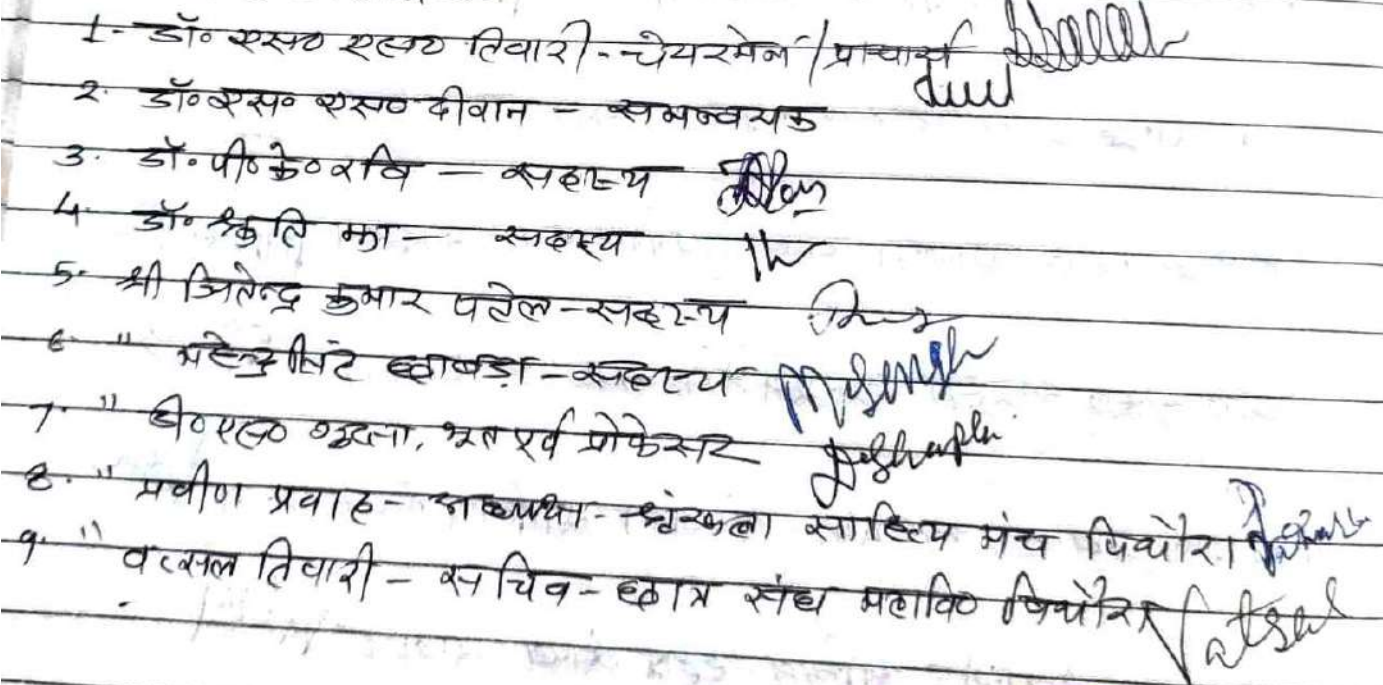 1- डॉ० एस० एल० तिवारी - चेयरमेन / प्राचार्य
2. डॉ० एस० एस० दीवान - समन्वयक
3. डॉ० पी० के० रवि - सदस्य
4. डॉ० श्रुति झा - सदस्य
5. श्री जितेन्द्र कुमार पटेल - सदस्य
6. " महेन्द्र सिंह छाबड़ा - सदस्य Msingh
7. " डी० एस० भूतपूर्व प्रोफेसर
8. " प्रवीण प्रवाह - अध्यक्ष - श्रृंखला साहित्य मंच पिथौरा
9. " वत्सल तिवारी - सचिव - छात्र संघ महावि० पिथौरा Vatsal